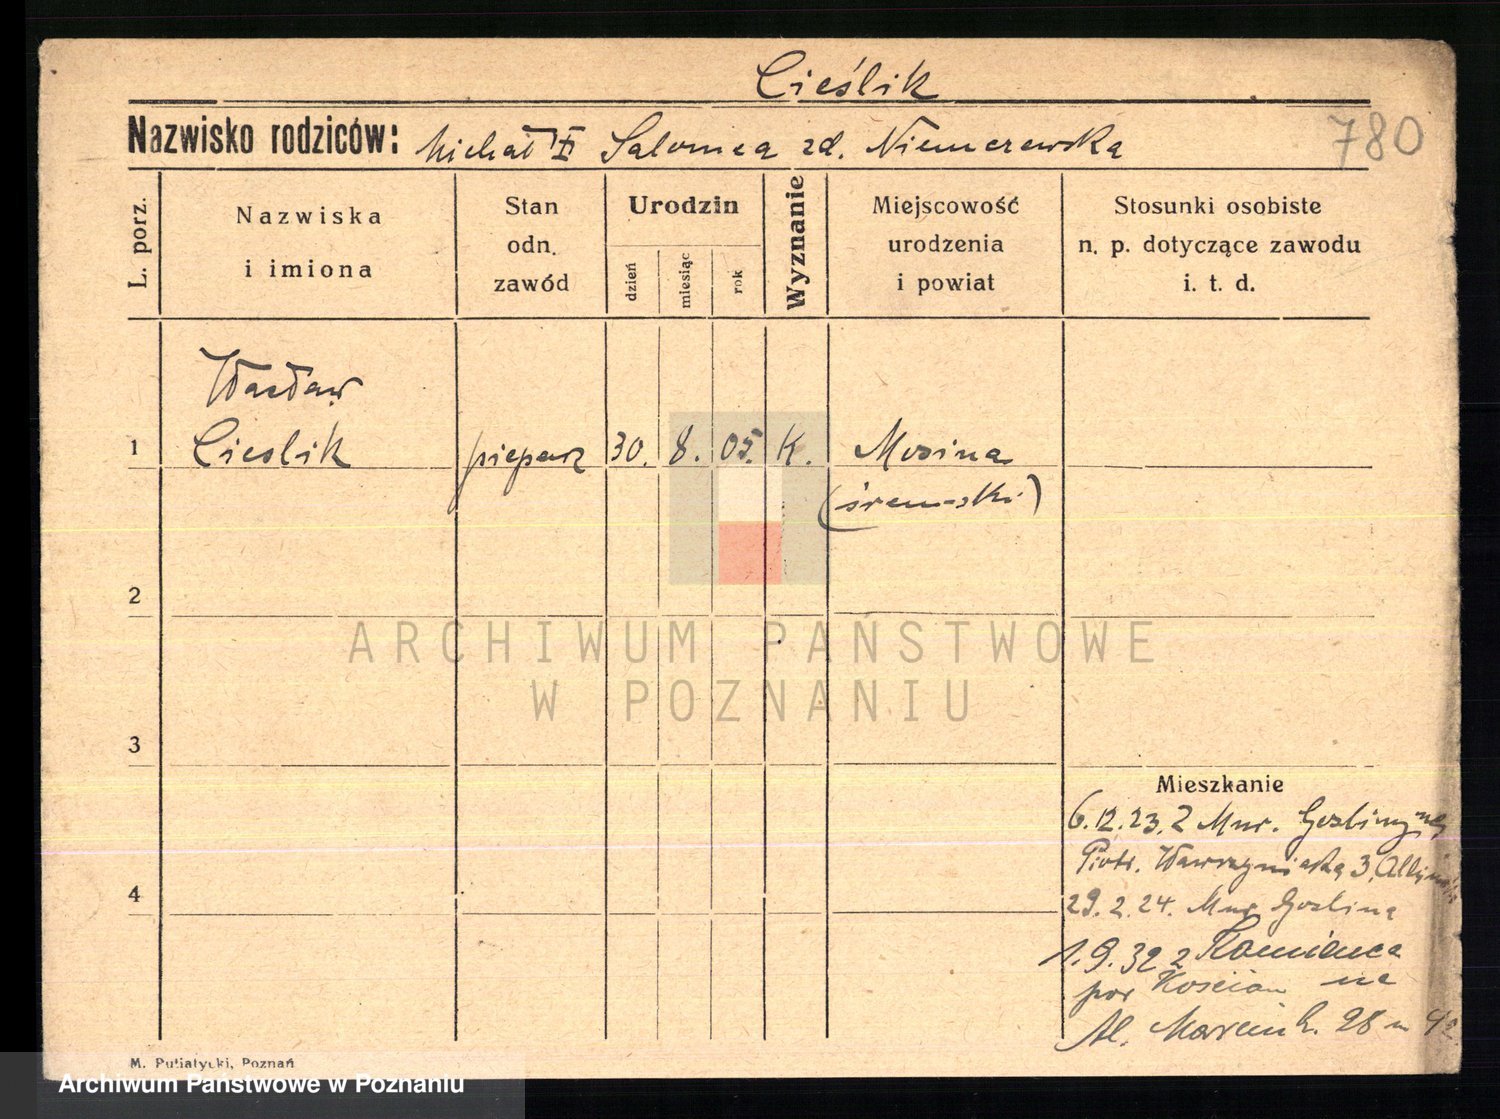 Cieślik
Nazwisko rodziców: Michał Salomea zd. Niemczewska
780
L. porz.
Nazwiska
i imiona
Stan
odn.
zawód
Urodzin
dzień
miesiąc
rok
Wyznanie
Miejscowość
urodzenia
i powiat
Stosunki osobiste
n. p. dotyczące zawodu
i. t. d.
Wacław
1 Cieslik piekarz 30. 8. 05. K. Mosina
(śremski)
2
ARCHIWUM PAŃSTWOWE
W POZNANIU
3
Mieszkanie
6.12.23. z Mur. Gosliny na
Piotr. Wawrzyniaka 3,
4
29.2.24. Mur Goslina
1.9.32 z Kamieńca
pow Kościan na
Al. Marcink. 28 m
M. Putiatycki, Poznań
Archiwum Państwowe w Poznaniu